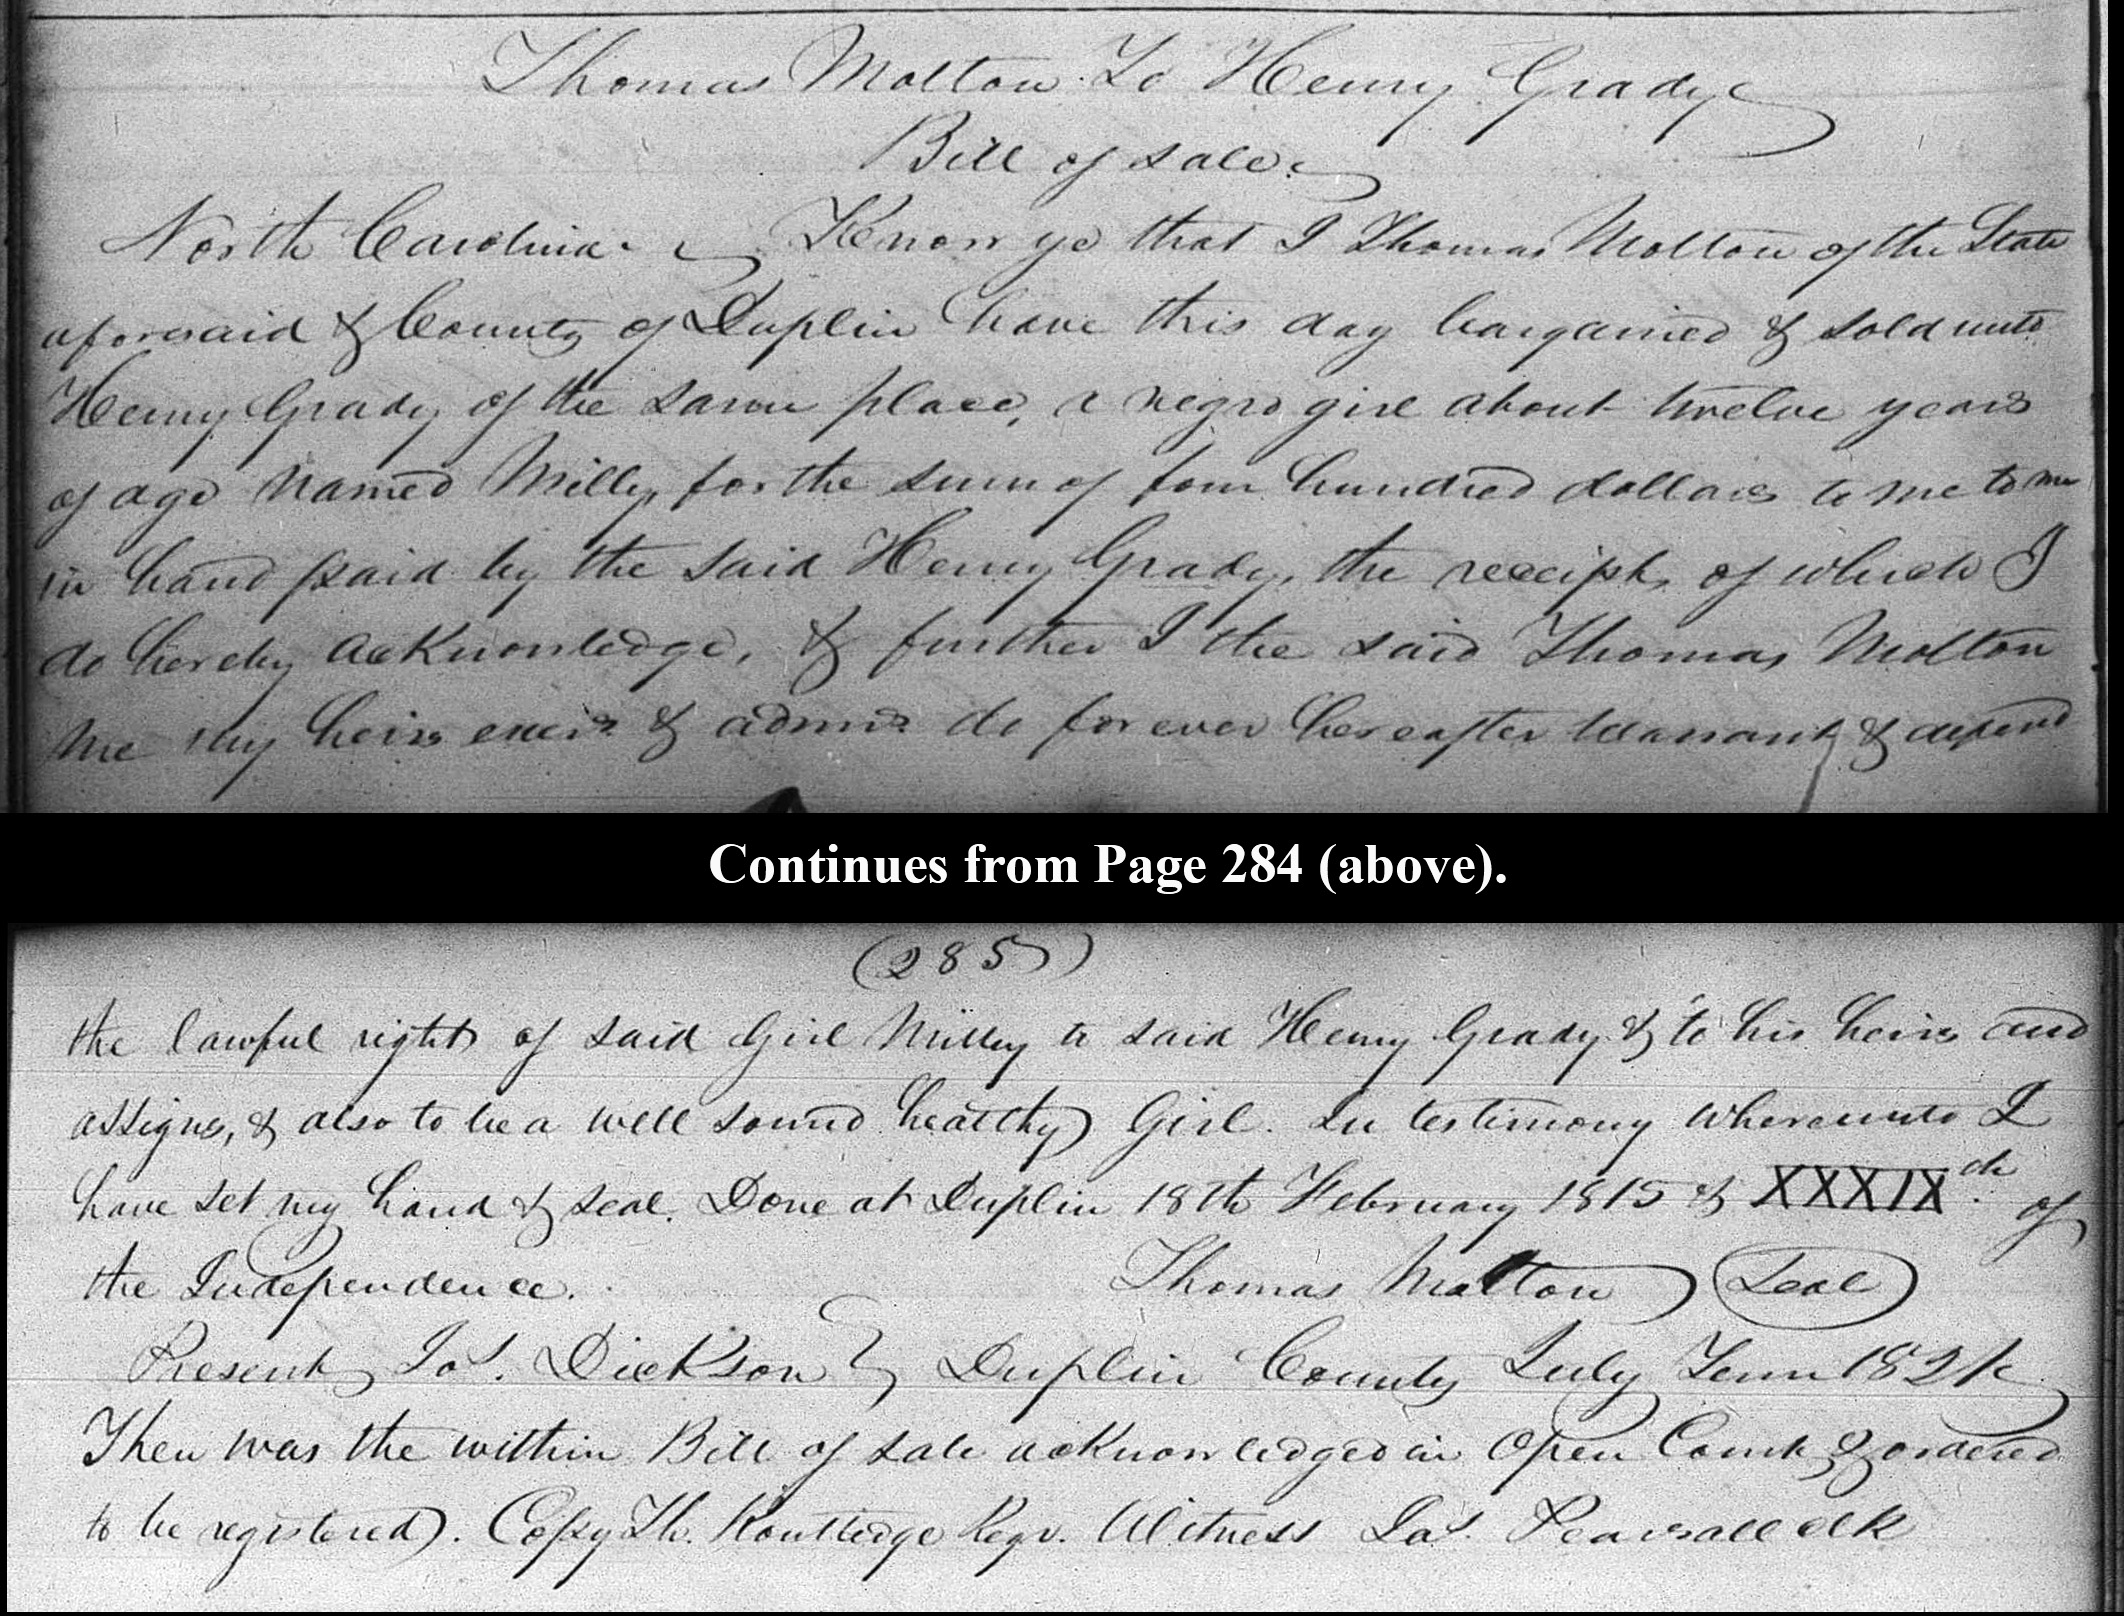 Thomas Molton To Henry Grady
Bill of sale.
North Carolina. Know ye that I Thomas Molton of the State
aforesaid & County of Duplin have this day bargained & sold unto
Henry Grady of the same place, a negro girl about twelve years
of age named Milly, for the sum of four hundred dollars to me to me
in hand paid by the said Henry Grady, the receipt of which I
do hereby acknowledge, & further I the said Thomas Molton
me my heirs exers & admrs do forever hereafter warrant & defend
Continues from Page 284 (above).
(285)
the lawful right of said Girl Milley to said Henry Grady & to his heirs and
assigns, & also to be a well sound healthy Girl. In testimony whereunto I
have set my hand & seal. Done at Duplin 18th February 1815 & XXXIX.th of
the Independence. Thomas Molton Seal
Present Jas. Dickson Duplin County July Term 1821
Then was the within Bill of sale acknowledged in Open Court & ordered
to be registered. Copy Th. Routledge Regr. Witness Jas. Pearsall clk